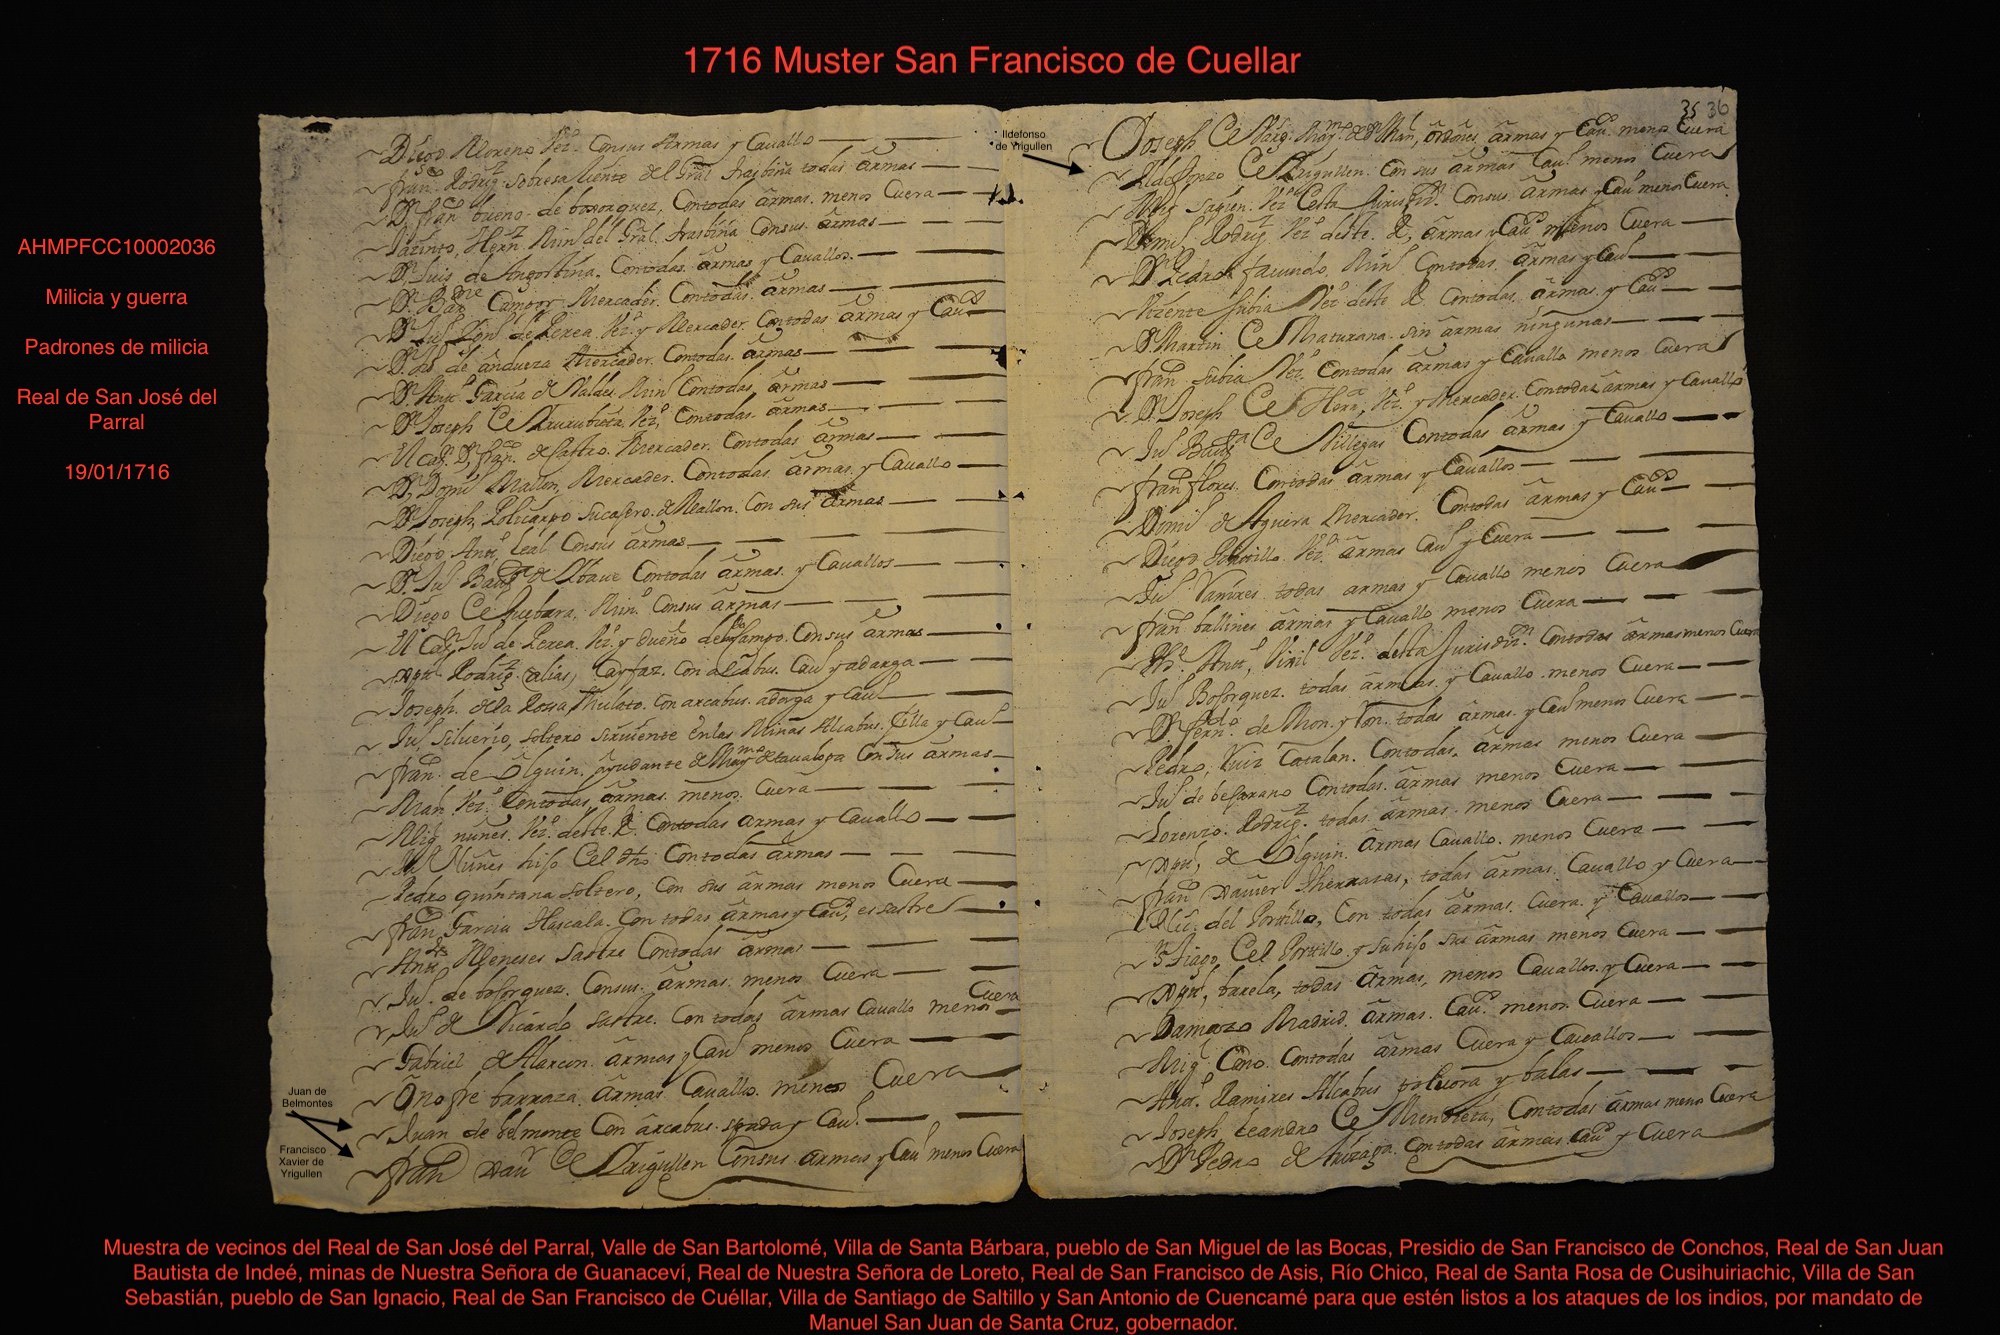 1716 Muster San Francisco de Cuellar
AHMPFCC10002036
Milicia y guerra
Padrones de milicia
Real de San José del
Parral
19/01/1716
Diego Moreno Vezo. Consus Armas y Cavallo
fran. Rodrig. Sobresaliente del Gral. todas armas
Dn. fran. bueno de bojorquez. Contodas armas. menos Cuera
Jacinto, Hern. Min. del Gral. Consus. armas
Dn. Luis de Contodas. armas y Cavallos.
Dn. Campo Mercader. Contodas. armas
Dn. Ju. de Perea. Vezo. y Mercader. Contodas armas y Cau
de andueza Mercader. Contodas. armas
Dn. Anto. Garcia de Valdes. Min. Contodas, armas
Dn. Joseph Vezo, Contodas. armas
El Cap. Dn. fran. de Castro. Mercader. Contodas armas
Dn. Domi. Mallen, Mercader. Contodas armas. y Cavallo
Dn. Joseph, Policarpo de Mallen. Con sus armas
Diego Anto. Leal Consus armas
Dn. Ju. Bau. de Contodas armas. y Cavallos
Diego Ce Guebara, Min. Consus armas
El Cap. Ju. de Perea, Vezo. y dueño del Campo. Consus armas
Rodrig. (alias, Con alcabus. Cau. y adarga
Joseph. de la Rossa Mulato. Con arcabus. adarga y Cau
Ju. Silverio, soltero sirviente en las Minas Alcabus. silla y Cau
fran. de Olguin. ayudante de Con sus armas
Man. Vezo. Contodas, armas. menos. Cuera
Mig. nuñes. Vezo. deste. R. Contodas armas y Cavallo
Ju. Nuñes hijo Cel dho Contodas armas
Pedro quintana soltero, Con sus armas menos Cuera
fran. Garcia Con todas armas y Cau. es sastre
Meneses Sastre Contodas armas
Ju. de bojorquez. Consus. armas. menos Cuera
Ju. de Ricardo sastre. Con todas armas Cavallo menos Cuera
Gabriel de Alarcon. armas y Cau menos Cuera
Onofre barraza. armas Cavallo. menos Cuera
Juan de belmonte Con arcabus. spada y Cau.
fran Xau. Ce Yrigullen Consus armas y Cau menos Cuera
Juan de
Belmontes
Francisco
Xavier de
Yrigullen
Ildefonso
de Yrigullen
35 36
Joseph Ce armas y Cau. menos Cuera
Ildefonzo Ce Yrigullen. Con sus armas Cau. menos Cuera
Mig. Vezo Consus. armas y Cau menos Cuera
Domi. Rodrig. Vezo deste. R, armas y Cau. menos Cuera
Dn. Pedro facundo, Min. Contodas armas y Cau
Vicente subia Vezo deste R. Contodas. armas. y Cau
Dn. Martin Ce Maturana. sin armas ningunas
fran subia Vezo. Contodas armas y Cavallo menos Cuera
Dn. Joseph Ce Vezo. y Mercader. Contodas armas y Cavallo
Ju Bau. Ce Villegas Contodas armas y Cavallo
fran flores. Contodas armas y Cavallos
Domi. de Aguera Mercader. Contodas armas y Cau
Diego Portillo Vezo. armas Cau y Cuera
Ju Ramires todas armas y Cavallo menos Cuera
fran ballines armas y Cavallo menos Cuera
Anto, Vezo. desta Jurisdi. Contodas armas menos Cuera
Ju Bojorquez. todas armas. y Cavallo. menos Cuera
Dn. Fern. de Mon. y todas armas. y Cau menos Cuera
Pedro, Ruiz Catalan. Contodas. armas menos Cuera
Ju de bejarano Contodas. armas menos Cuera
Lorenzo. Rodrig. todas armas. menos Cuera
de Olguin. armas Cavallo. menos Cuera
fran xavier todas armas. Cavallo y Cuera
del Portillo, Con todas armas. Cuera y Cavallos
Cel Portillo y su hijo sus armas menos Cuera
barela, todas armas, menos Cavallos. y Cuera
Damazo Madrid. armas. Cau. menos Cuera
Mig. Cano. Contodas armas Cuera y Cavallos
Anto. Ramires Alcabus polvora y balas
Joseph Leandro Ce Mendieta, Contodas armas menos Cuera
Dn. Pedro de Con todas armas Cau y Cuera
Muestra de vecinos del Real de San José del Parral, Valle de San Bartolomé, Villa de Santa Bárbara, pueblo de San Miguel de las Bocas, Presidio de San Francisco de Conchos, Real de San Juan
Bautista de Indeé, minas de Nuestra Señora de Guanaceví, Real de Nuestra Señora de Loreto, Real de San Francisco de Asis, Río Chico, Real de Santa Rosa de Cusihuiriachic, Villa de San
Sebastián, pueblo de San Ignacio, Real de San Francisco de Cuéllar, Villa de Santiago de Saltillo y San Antonio de Cuencamé para que estén listos a los ataques de los indios, por mandato de
Manuel San Juan de Santa Cruz, gobernador.